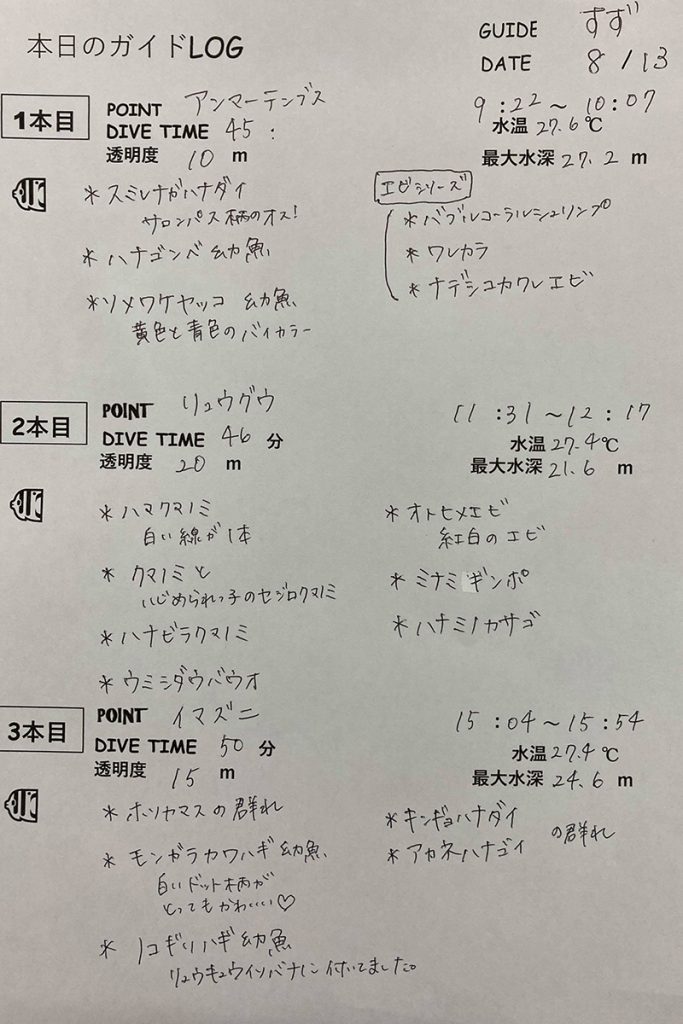 本日のガイドLOG
GUIDE すず
DATE 8/13
1本目
POINT アンマーテンブス
9:22～10:07
DIVE TIME 45:
水温27.6℃
透明度 10 m
最大水深27.2 m
*スミレナガハナダイ
サロンパス柄のオス!
*ハナゴンベ 幼魚
*ソメワケヤッコ 幼魚
黄色と青色のバイカラー
エビシリーズ
*バブルコーラルシュリンプ
*ワレカラ
*ナデシコカクレエビ
2本目
POINT リュウグウ
11:31～12:17
DIVE TIME 46 分
水温27.4℃
透明度 20 m
最大水深21.6 m
*ハマクマノミ
白い線が1本
*クマノミと
いじめられっ子のセジロクマノミ
*ハナビラクマノミ
*ウミシダウバウオ
*オトヒメエビ
紅白のエビ
*ミナミギンポ
*ハナミノカサゴ
3本目
POINT イマズニ
15:04～15:54
DIVE TIME 50 分
水温27.4℃
透明度 15 m
最大水深24.6 m
*ホソカマスの群れ
*モンガラカワハギ幼魚
白いドット柄が
とってもかわいい♡
*ノコギリハギ幼魚
リュウキュウイソバナに付いてました。
*キンギョハナダイ
*アカネハナゴイ
の群れ